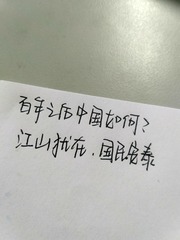 百年之后中国如何？
江山犹在．国民安泰